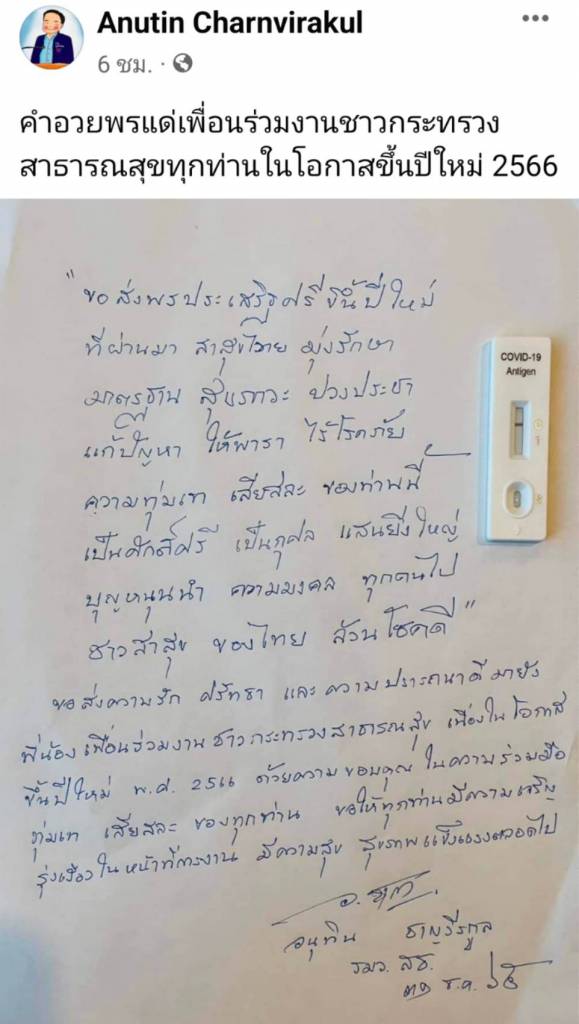 Anutin Charnvirakul
6 ชม.
คำอวยพรแด่เพื่อนร่วมงานชาวกระทรวง
สาธารณสุขทุกท่านในโอกาสขึ้นปีใหม่ 2566
"ขอส่งพรประเสริฐศรี ขึ้นปีใหม่
ที่ผ่านมา สาสุขไทย มุ่งรักษา
มาตรฐาน สุขภาวะ ปวงประชา
แก้ปัญหา ให้พารา ไร้โรคภัย
ความทุ่มเท เสียสละ ของท่านนี้
เป็นศักดิ์ศรี เป็นกุศล แสนยิ่งใหญ่
บุญหนุนนำ ความมงคล ทุกคนไป
ชาวสาสุข ของไทย ล้วนโชคดี"
ขอส่งความรัก ศรัทธา และความปรารถนาดี มายัง
พี่น้องเพื่อนร่วมงานชาวกระทรวงสาธารณสุข เนื่องในโอกาส
ขึ้นปีใหม่ พ.ศ. 2566 ด้วยความขอบคุณ ในความร่วมมือ
ทุ่มเท เสียสละ ของทุกท่าน ขอให้ทุกท่านมีความเจริญ
รุ่งเรืองในหน้าที่การงาน มีความสุข สุขภาพแข็งแรงตลอดไป
อนุทิน ชาญวีรกูล
รมว. สธ.
๓๑ ธ.ค. ๖๕
COVID-19
Antigen